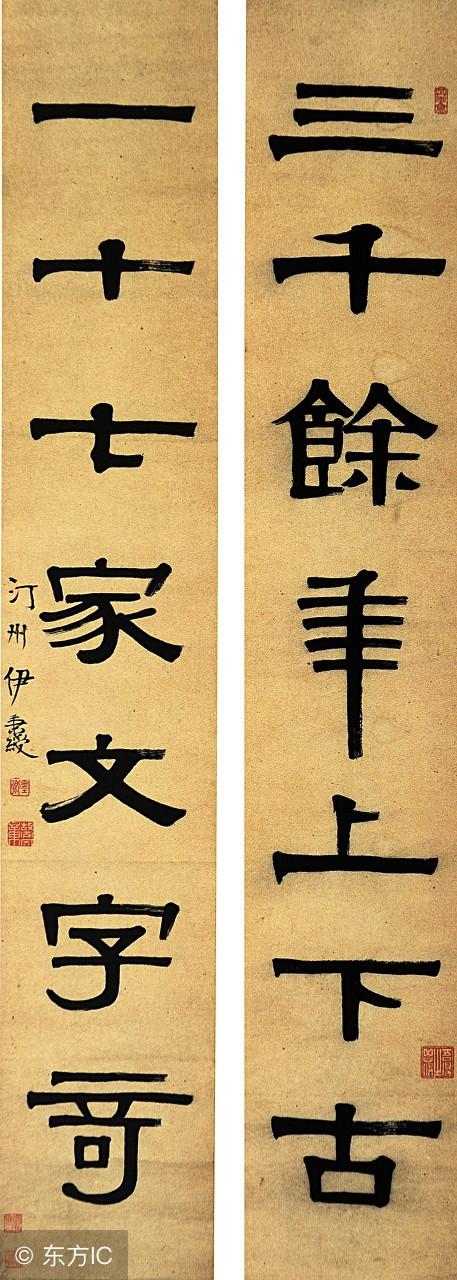 三千餘年上下古
一十七家文字奇
汀州伊秉綬
© 东方IC